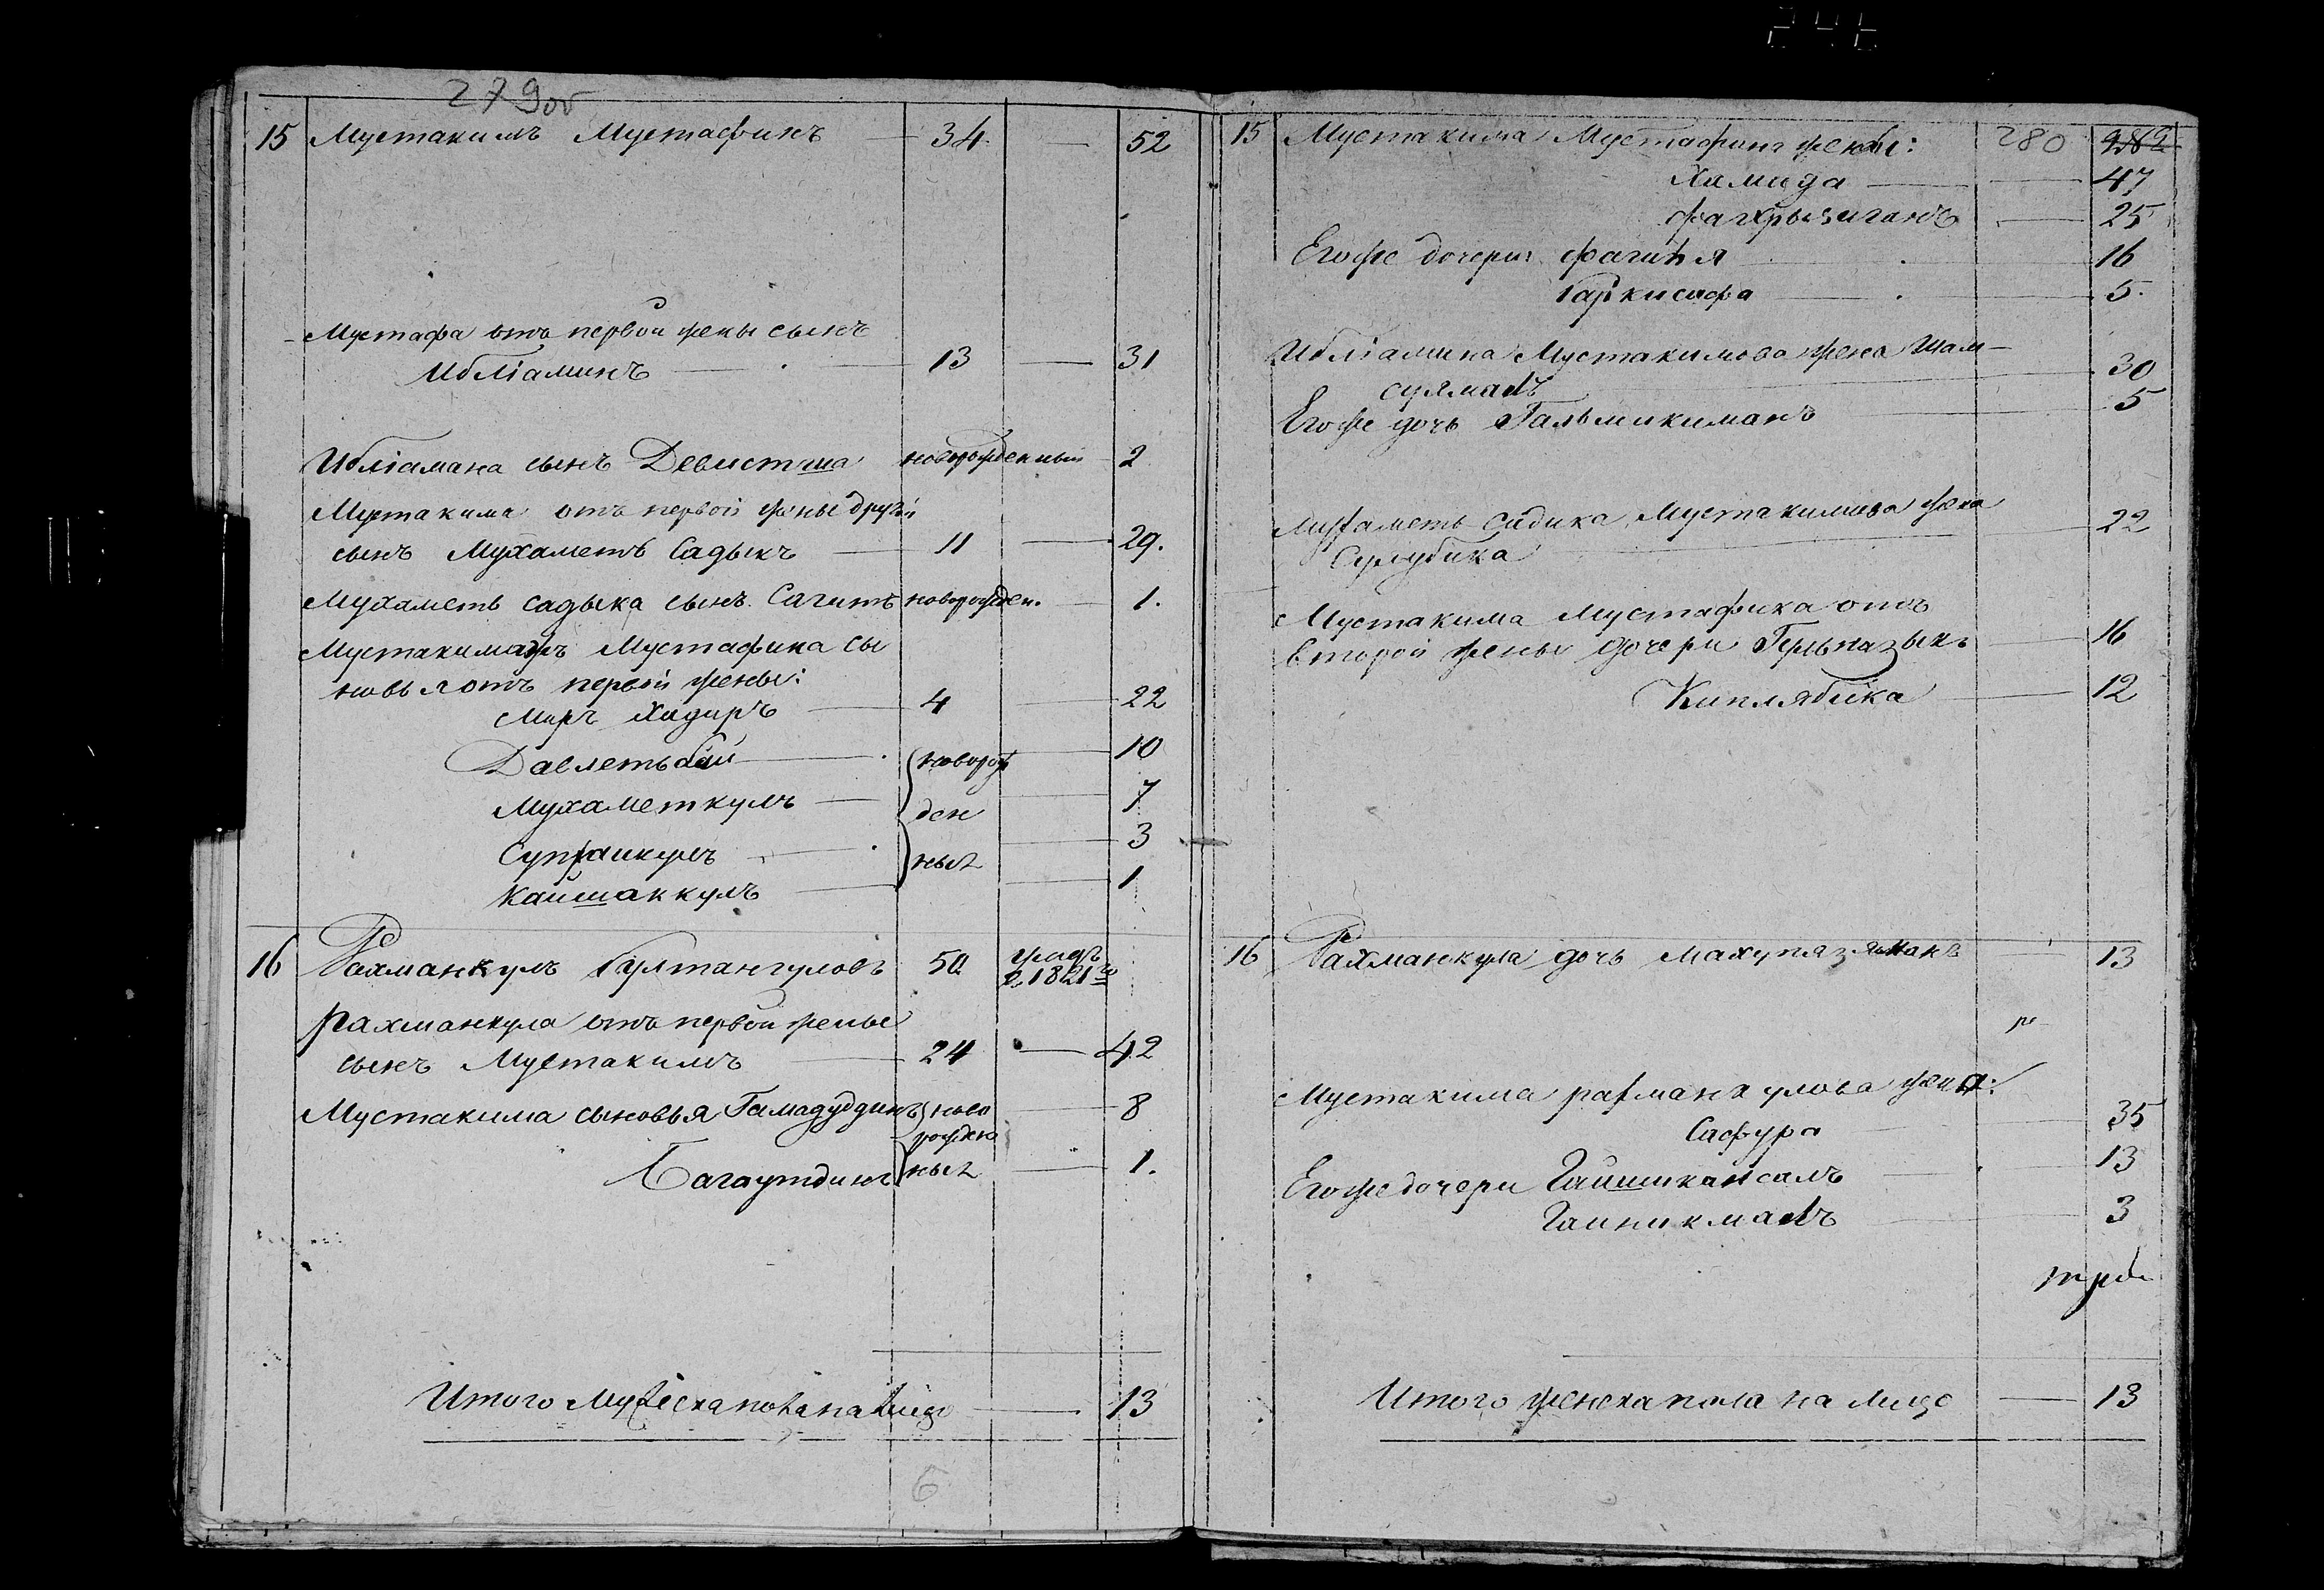 279об
15 Мустакимъ Мустафинъ 34 — 52
Мустафа отъ первой жены сынъ
Ибліаминъ 13 — 31
Ибліамана сынъ Девистша новорожденный 2
Мустакима отъ первой жены другй
сынъ Мухаметъ Садыкъ 11 — 29.
Мухаметь садыка сынъ Сагитъ новорожден. 1.
Мустакимажъ Мустафина сы
новья отъ первой жены:
Миръ Хидиръ 4 — 22
Давлетьбай новорож 10
Мухаметкулъ ден 7
кулъ 3
Кайшаккулъ ныя 1
16 Рахманкулъ Султангуловъ 50 1821го
Рахманкула отъ первой жены
сынъ Мустакимъ 24 — 42
Мустакима сыновья Гамадуддинъ ново 8
рожден
Багаутдинъ ныя 1.
Итого Мужеска пола на лицо — 13
6
15 Мустакима Мустафина жены: 280
Хамида 47
Фахрызиганъ 25
Егоже дочери 16
5.
Ибліамина Мустакимова жена Шам-
30
Егоже дочь Гальмикиманъ 5
Мухаметь Садика Мустакимова жена 22
Сулубика
Мустакима Мустафина отъ
второй жены дочери Гульназыкъ 16
Киплябика 12
16 Рахманкула дочь 13
Мустакима рахманкулова жена:
Сафура 35
Егоже дочери 13
3
Итого женска пола на лицо — 13